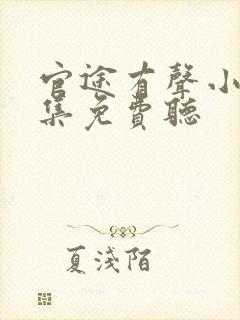 官途有聲小
集免費聽
夏淺陌